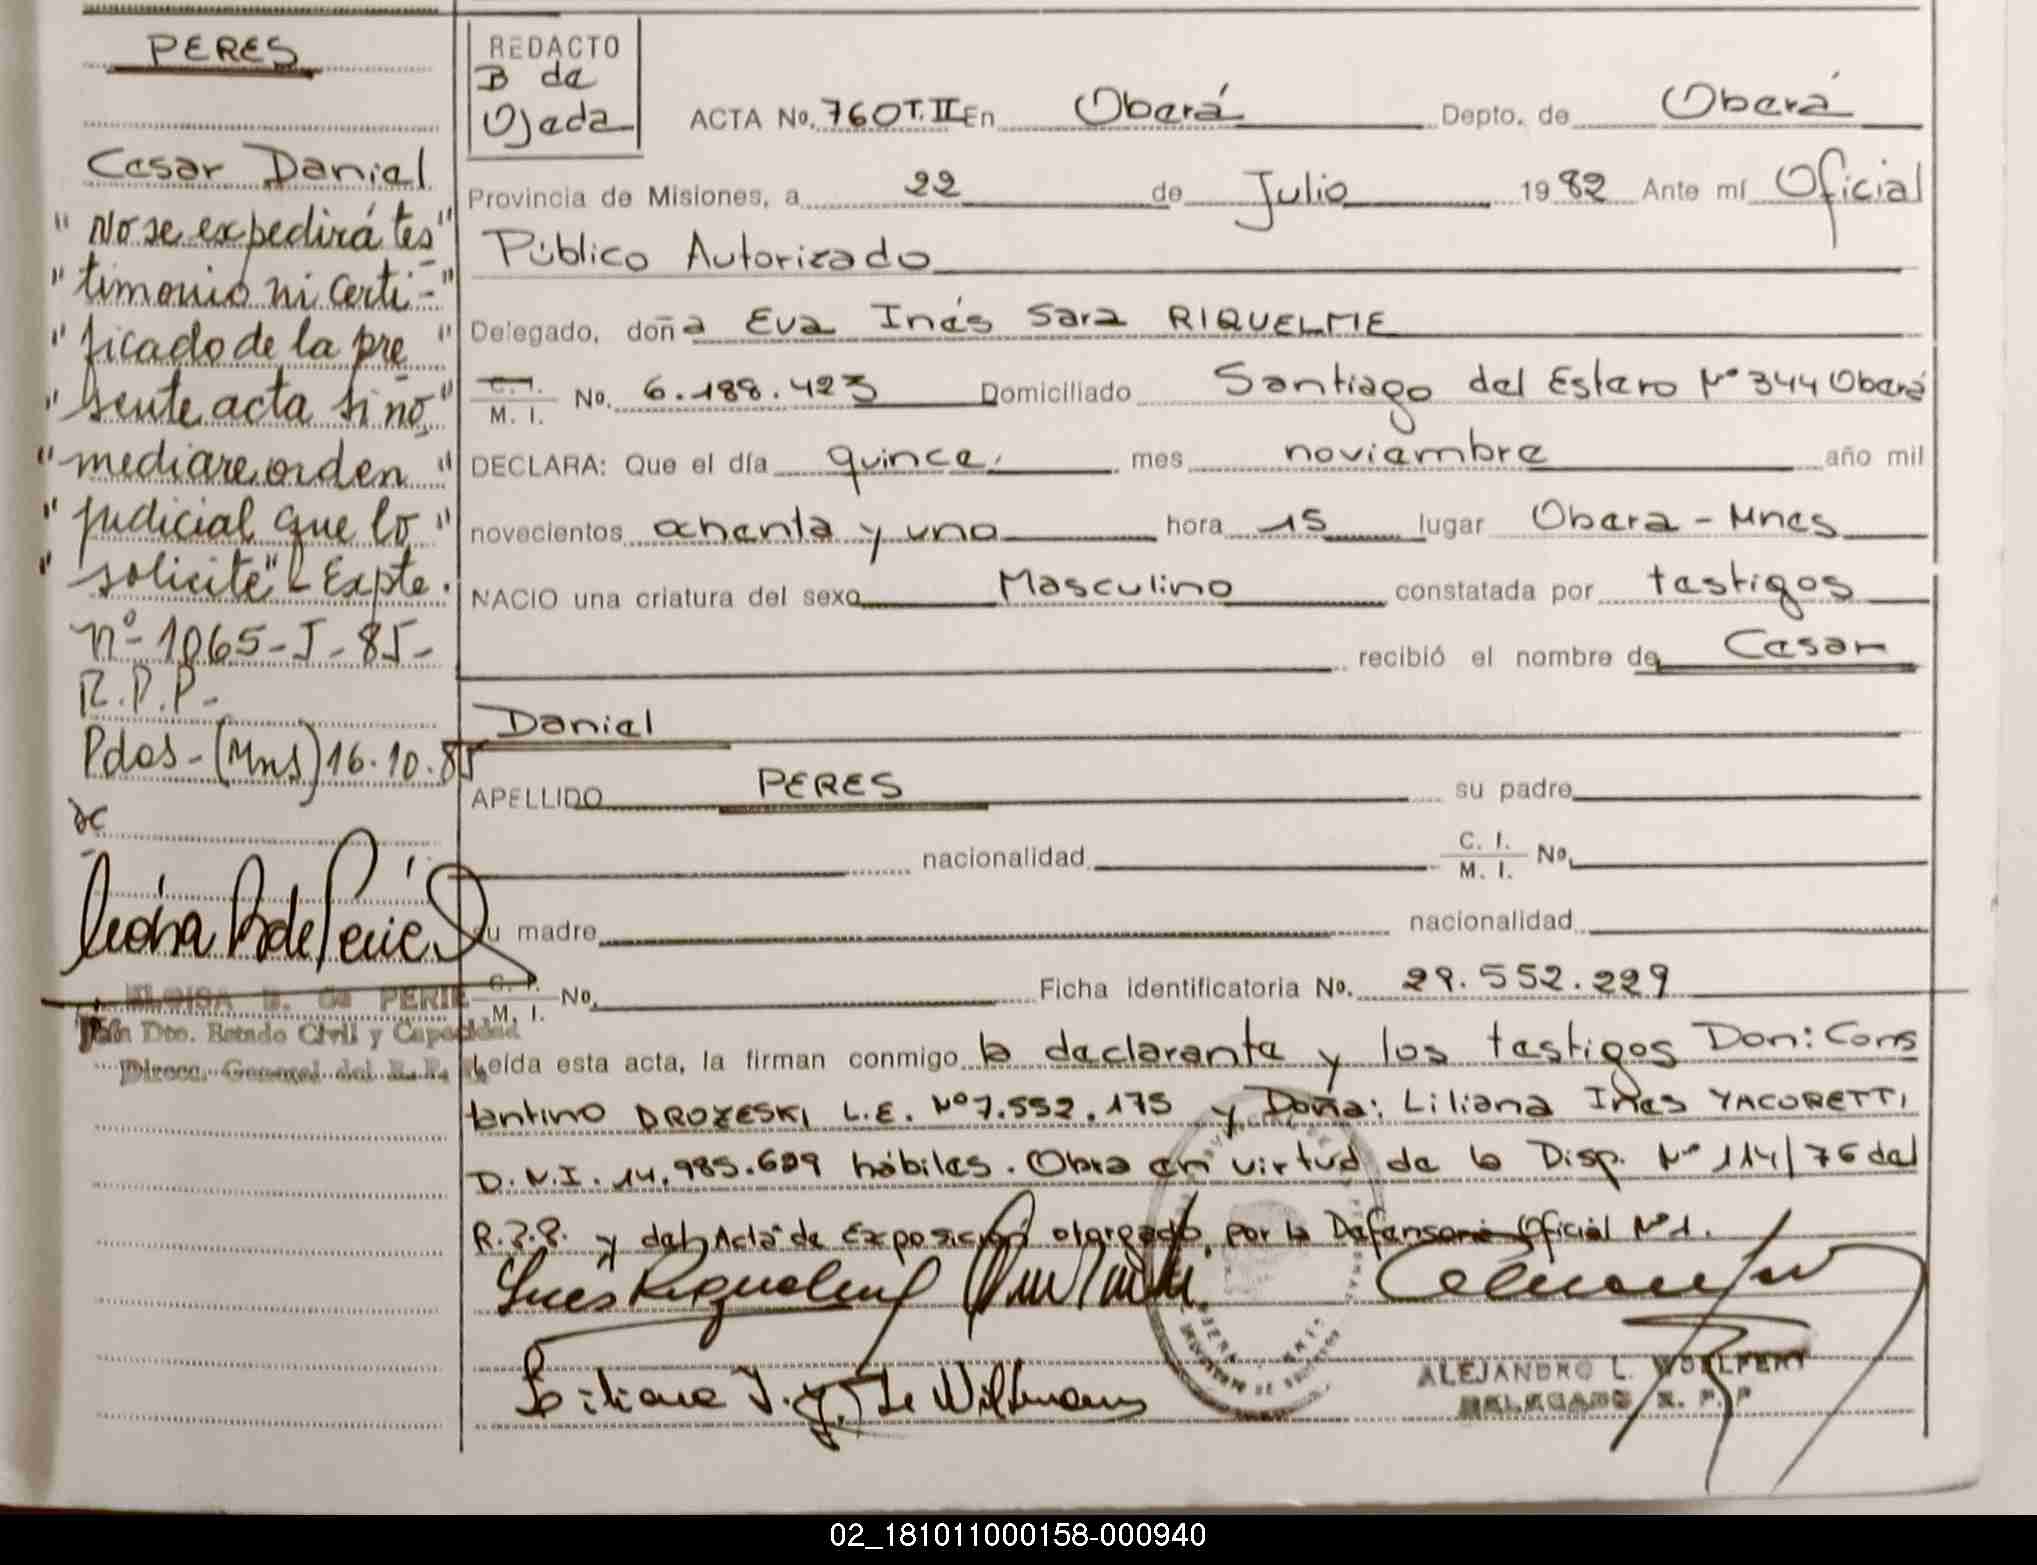 PERES
Cesar Daniel
" No se expedirá tes "
" timonio ni certi- "
" ficado de la pre "
" sente acta si no "
" mediare orden "
" judicial que lo "
" solicite" - Expte.
nº 1065-J-85-
R.P.P.-
Pdas-(Mns) 16.10.85
ELOISA B. de PERIE
Jefa Dto. Estado Civil y Capacidad
Direcc. General del R. P.
REDACTO
B de
Ojeda
ACTA No. 760 T. II En Oberá Depto. de Oberá
Provincia de Misiones, a 22 de Julio 1982 Ante mí Oficial
Público Autorizado
Delegado, doña Eva Inés Sara RIQUELME
C. I. / M. I. No. 6.188.423 Domiciliado Santiago del Estero Nº 344 Oberá
DECLARA: Que el día quince mes noviembre año mil
novecientos ochenta y uno hora 15 lugar Obera - Mnes
NACIO una criatura del sexo Masculino constatada por testigos
recibió el nombre de Cesar
Daniel
APELLIDO PERES su padre
nacionalidad C. I. / M. I. No.
su madre nacionalidad
C. I. / M. I. No. Ficha identificatoria No. 29.552.229
Leída esta acta, la firman conmigo la declarante y los testigos Don: Cons
tantino DROZESKI L.E. Nº 7.552.175 y Doña: Liliana Ines YACORETTI
D.N.I. 14.985.689 hábiles. Obra en virtud de la Disp. Nº 114/76 del
R.P.P. y del Acta de Exposición otorgado por la Defensoria Oficial Nº 1.
Inés Riquelme
Liliana I. Y. de
ALEJANDRO L. WOLFERT
DELEGADO R. P. P
02_181011000158-000940